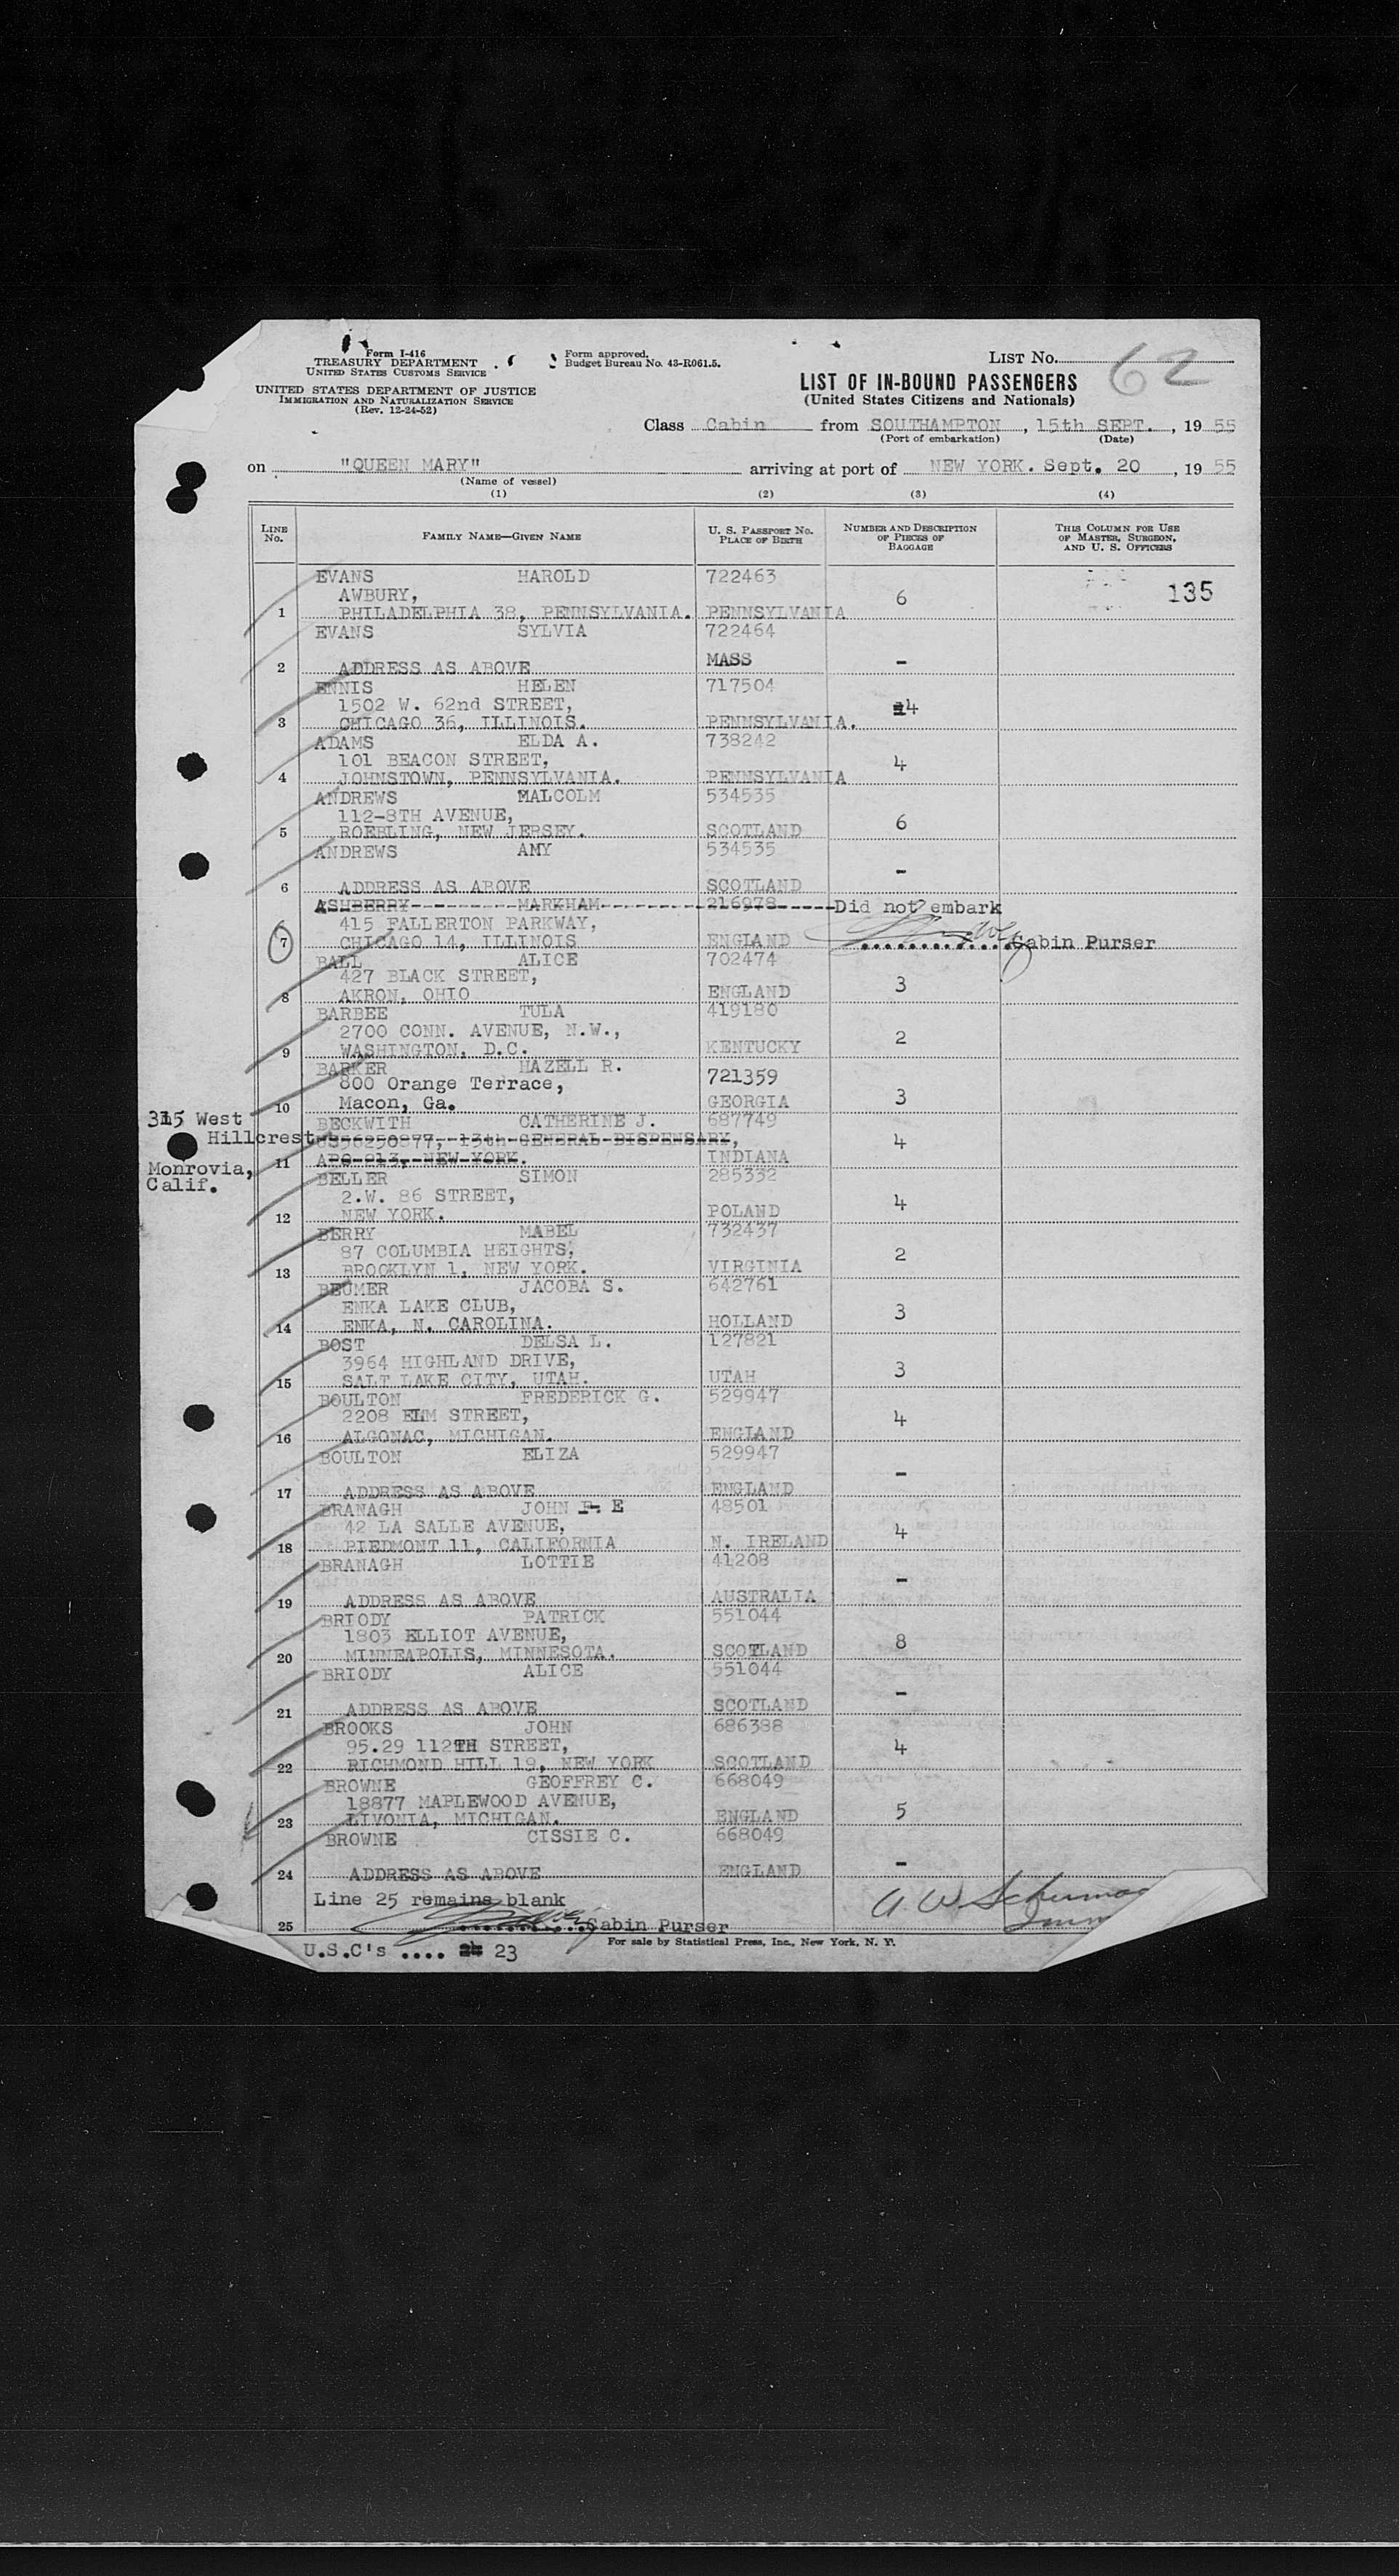 Form I-416
TREASURY DEPARTMENT
UNITED STATES CUSTOMS SERVICE
UNITED STATES DEPARTMENT OF JUSTICE
IMMIGRATION AND NATURALIZATION SERVICE
(Rev. 12-24-52)
Form approved.
Budget Bureau No. 43-R061.5.
LIST No. 62
LIST OF IN-BOUND PASSENGERS
(United States Citizens and Nationals)
Class Cabin from SOUTHAMPTON, 15th SEPT., 1955
(Port of embarkation) (Date)
on "QUEEN MARY" arriving at port of NEW YORK. Sept. 20, 1955
(Name of vessel)
(1) (2) (3) (4)
LINE No. FAMILY NAME—GIVEN NAME U. S. PASSPORT No. PLACE OF BIRTH NUMBER AND DESCRIPTION OF PIECES OF BAGGAGE THIS COLUMN FOR USE OF MASTER, SURGEON, AND U. S. OFFICERS
EVANS HAROLD 722463
AWBURY, 6 135
1 PHILADELPHIA 38, PENNSYLVANIA. PENNSYLVANIA
EVANS SYLVIA 722464
2 ADDRESS AS ABOVE MASS -
ENNIS HELEN 717504
1502 W. 62nd STREET, 4
3 CHICAGO 36, ILLINOIS. PENNSYLVANIA.
ADAMS ELDA A. 738242
101 BEACON STREET, 4
4 JOHNSTOWN, PENNSYLVANIA. PENNSYLVANIA
ANDREWS MALCOLM 534535
112-8TH AVENUE, 6
5 ROEBLING, NEW JERSEY. SCOTLAND
ANDREWS AMY 534535
-
6 ADDRESS AS ABOVE SCOTLAND
ASHBERRY MARKHAM 216978 Did not embark
415 FALLERTON PARKWAY,
7 CHICAGO 14, ILLINOIS ENGLAND Cabin Purser
BALL ALICE 702474
427 BLACK STREET, 3
8 AKRON, OHIO ENGLAND
BARBEE TULA 419180
2700 CONN. AVENUE, N.W., 2
9 WASHINGTON, D.C. KENTUCKY
BARKER HAZELL R. 721359
800 Orange Terrace, 3
10 Macon, Ga. GEORGIA
315 West
Hillcrest
Monrovia,
Calif.
BECKWITH CATHERINE J. 687749
US56250877, 13th GENERAL DISPENSARY, 4
11 APO 813, NEW YORK. INDIANA
BELLER SIMON 285332
2.W. 86 STREET, 4
12 NEW YORK. POLAND
BERRY MABEL 732437
87 COLUMBIA HEIGHTS, 2
13 BROOKLYN 1, NEW YORK. VIRGINIA
BEUMER JACOBA S. 642761
ENKA LAKE CLUB, 3
14 ENKA, N. CAROLINA. HOLLAND
BOST DELSA L. 127821
3964 HIGHLAND DRIVE, 3
15 SALT LAKE CITY, UTAH. UTAH
BOULTON FREDERICK G. 529947
2208 ELM STREET, 4
16 ALGONAC, MICHIGAN. ENGLAND
BOULTON ELIZA 529947
-
17 ADDRESS AS ABOVE ENGLAND
BRANAGH JOHN E 48501
42 LA SALLE AVENUE, 4
18 PIEDMONT 11, CALIFORNIA N. IRELAND
BRANAGH LOTTIE 41208
-
19 ADDRESS AS ABOVE AUSTRALIA
BRIODY PATRICK 551044
1803 ELLIOT AVENUE, 8
20 MINNEAPOLIS, MINNESOTA. SCOTLAND
BRIODY ALICE 551044
-
21 ADDRESS AS ABOVE SCOTLAND
BROOKS JOHN 686388
95.29 112TH STREET, 4
22 RICHMOND HILL 19, NEW YORK SCOTLAND
BROWNE GEOFFREY C. 668049
18877 MAPLEWOOD AVENUE, 5
23 LIVONIA, MICHIGAN. ENGLAND
BROWNE CISSIE C. 668049
-
24 ADDRESS AS ABOVE ENGLAND
Line 25 remains blank
25 Cabin Purser
For sale by Statistical Press, Inc., New York, N. Y.
U.S.C's .... 23